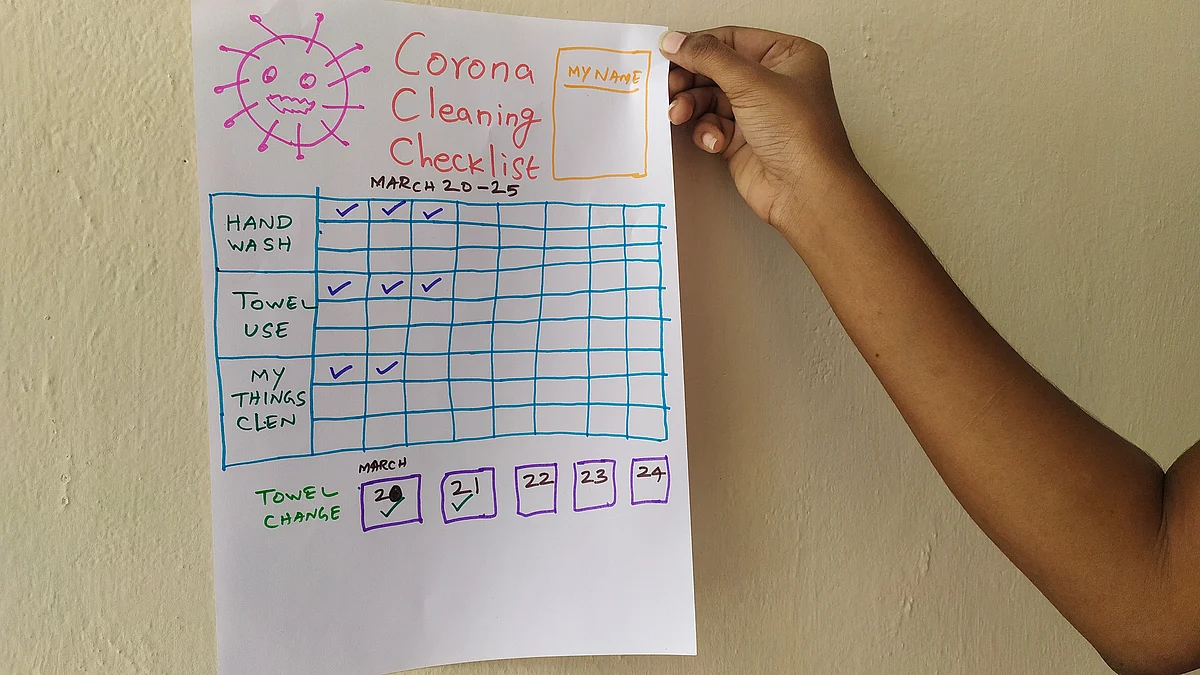 Corona
Cleaning
Checklist
MY NAME
MARCH 20-25
HAND
WASH
TOWEL
USE
MY
THINGS
CLEN
MARCH
TOWEL
CHANGE
20
21
22
23
24